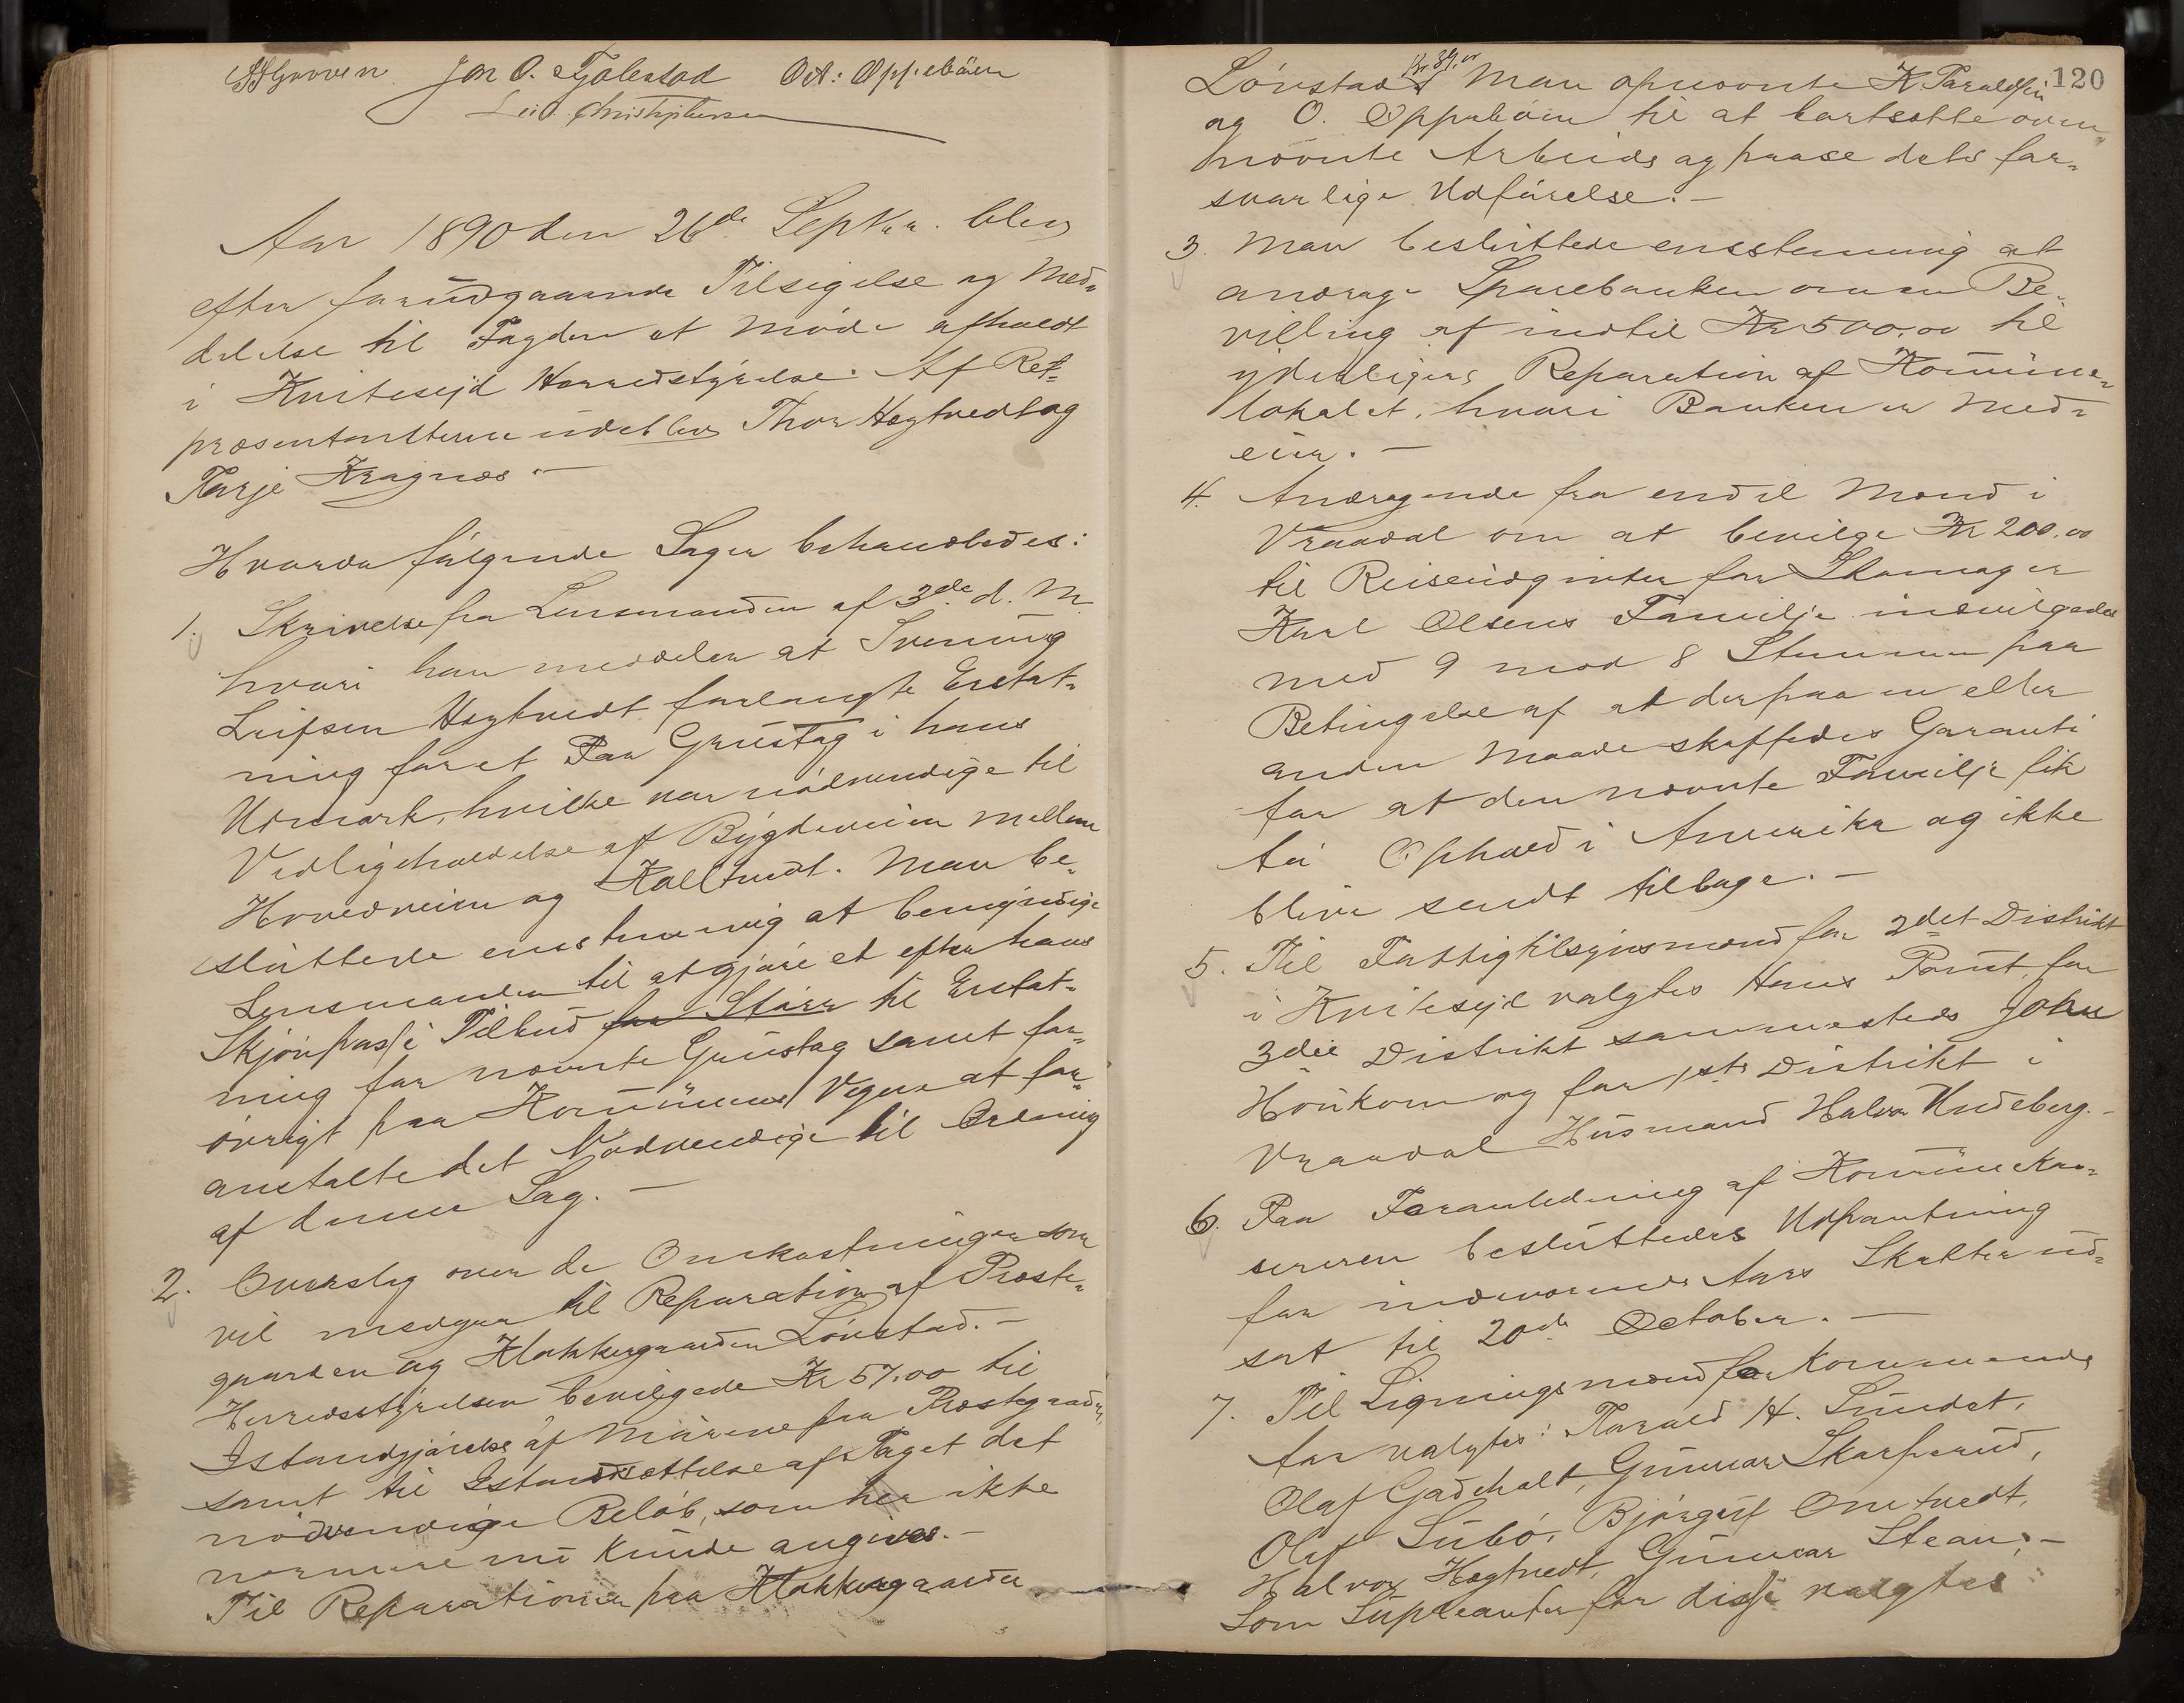 Jon O. Tjolestad Ost: Oppeböen
Leif O. Christophersen
Aar 1890 den 26de Septbr. blev
efter forudgaaende Tilsigelse og Med-
delelse til Fogden et Möde afholdt
i Kvitesejd Herredstyrelse. Af Re-
præsentanterne udeblev Thor Hegtvedt og
Tarje Kragnæs. —
Hvorda fölgende Sager behandledes:
1. Skrivelse fra Lensmanden af 3de d. M
hvori han meddeler at Svenung
Leifsen Hegtvedt forlangte Erstat-
ning for et Par Grustag i hans
Udmark, hvilke var nödvendige til
Vedligeholdelse af Bygdeveien mellem
Hovedveien og Kolltvedt. Man be-
sluttede enstemmig at bemyndige
Lensmanden til at gjöre et efter hans
Skjön passe Tilbud for Större til Erstat-
ning for nævnte Grustag samt for-
övrigt paa Kommunens Vegne at for-
anstalte det Nödvendige til Ordning
af denne Sag. —
2. Overslag over de Omkostninger som
vil medgaa til Reparation af Præste-
gaarden og Klokkergaarden Lönstad. —
Herredsstyrelsen bevilgede Kr 57.00 til
Istandgjörelse af Murene paa Præstegaarden,
samt til Istandsættelse af Taget det
nödvendige Belöb, som her ikke
nærmere nu kunde angives. —
Til Reparationen paa Klokkergaarden
120
Lönstad Kr 89.00 Man opnævnte K. Taraldsen
og O. Oppeböen til at bortsætte oven-
nævnte Arbeide og paase dets for-
svarlige Udförelse. —
3. Man besluttede enstemmig at
andrage Sparebanken om en Be-
villing af indtil Kr 500.00 til
yderligere Reparation af Kommune-
lokalet, hvori Banken er Med-
eier. —
4. Andragende fra endel Mænd i
Vraadal om at bevilge Kr 200.00
til Reiseudgivter for Skomager
Karl Olsens Familje indvilgedes
med 9 mod 8 Stemmer paa
Betingelse af at der paa en eller
anden Maade skaffedes Garanti
for at den nævnte Familje fik
Ophold i Amerika og ikke
blive sendt tilbage. —
5. Til Fattigtilsynsmænd for 2det Distrikt
i Kvitesejd valgtes Hans for
3die Distrikt sammesteds John
Höukom og for 1ste Distrikt i
Vraadal Husmand Halvor Undeberg. —
6. Paa Foranledning af Kommunekas-
sereren besluttedes Udpantning
for indeværende Aars Skatter ud-
sat til 20de October. —
7. Til Ligningsmænd for kommende
Aar valgtes: Tarald H. Sundet,
Olaf Gadeholt, Gunnar Skarprud,
Olaf Subö, Björgulf Omtvedt,
Halvor Hegtvedt, Gunnar Stean, —
Som Supleanter for disse valgtes